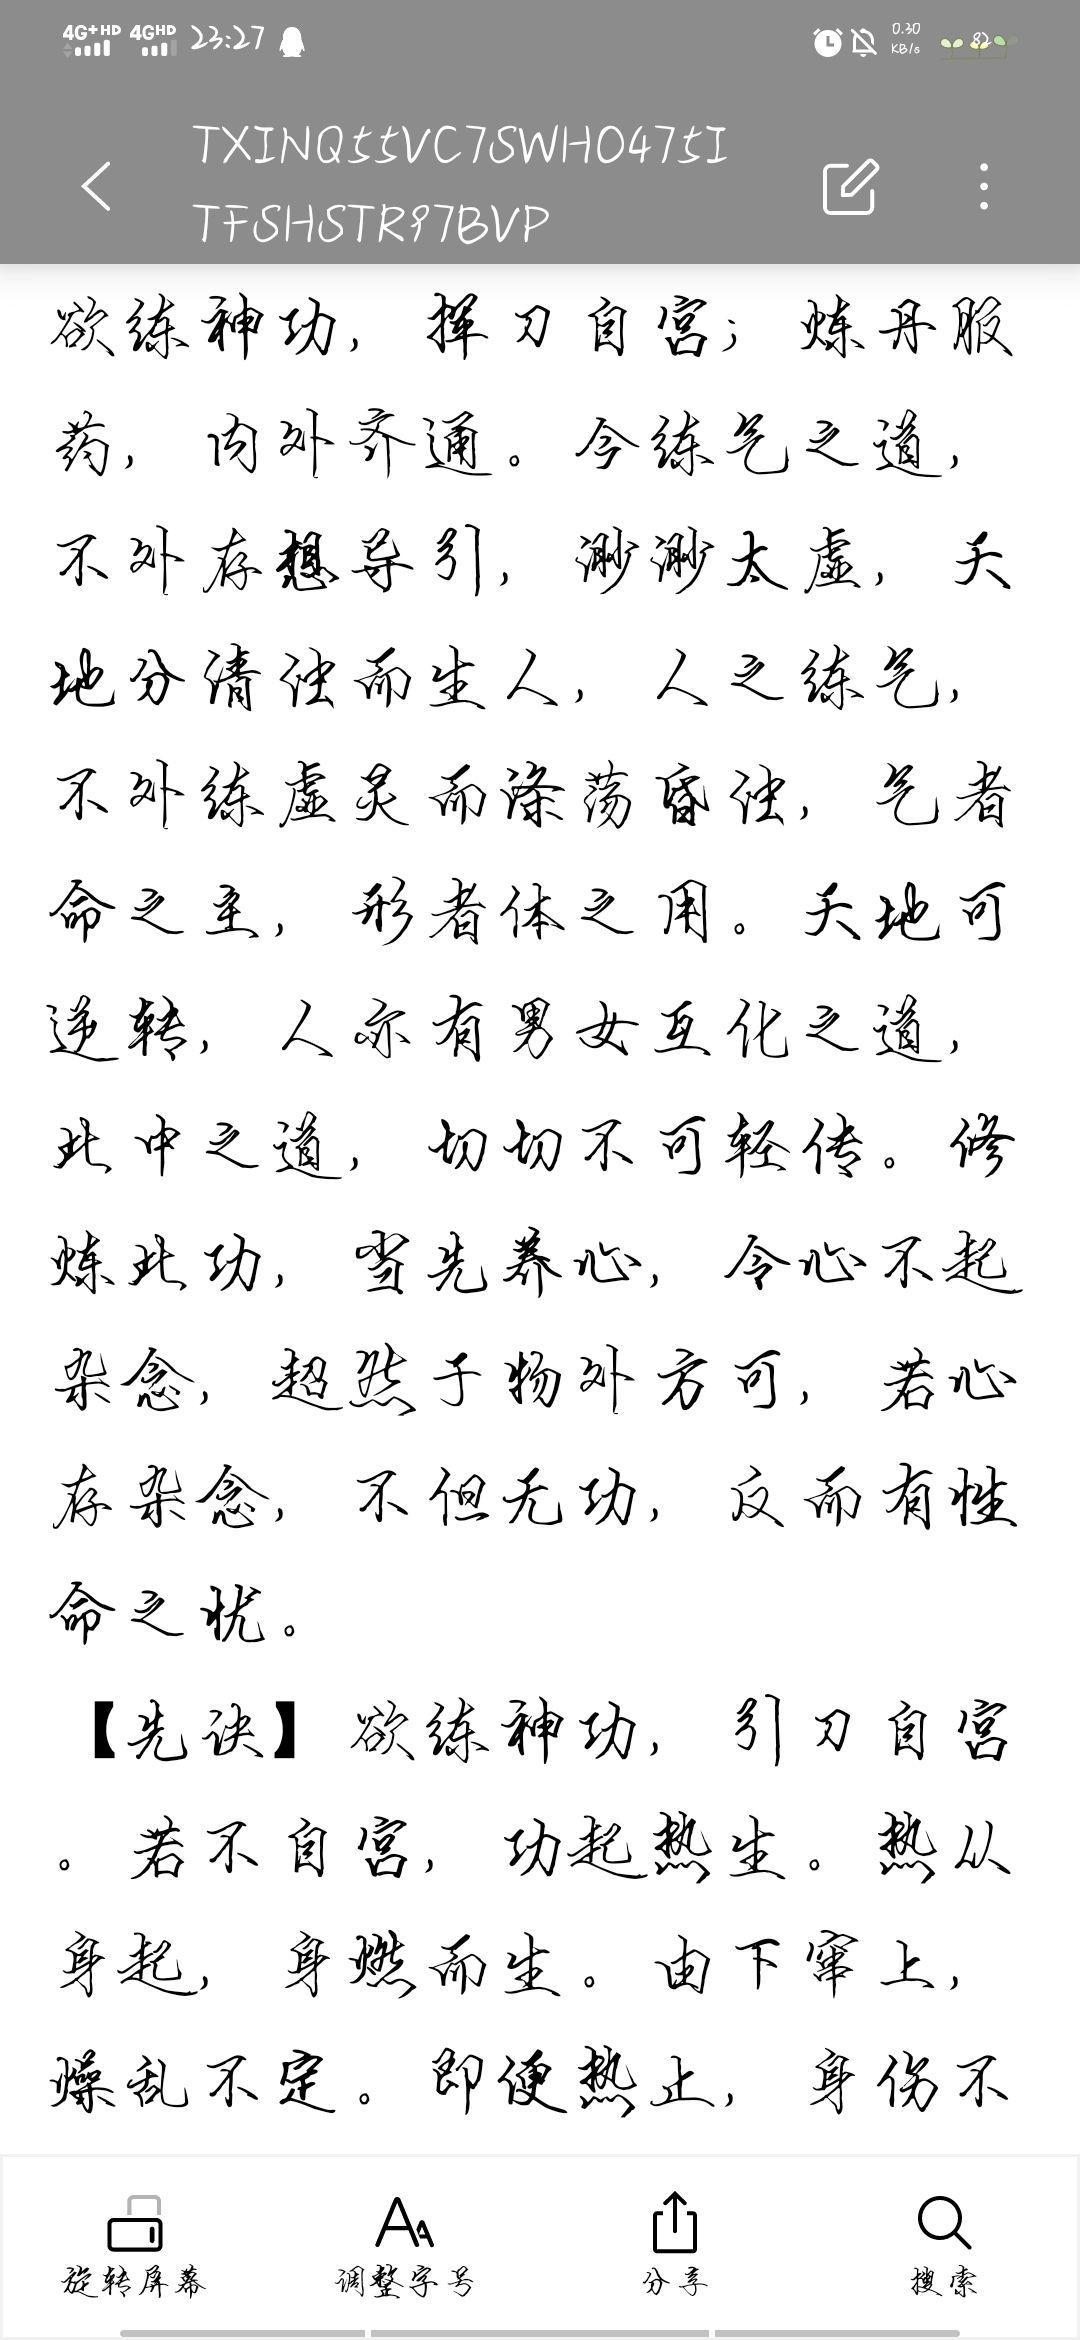 4G+HD 4GHD 23:27
0.30 KB/s 82
TXINQ55VC7SWHO475I
TFSHSTR97BVP
欲练神功，挥刀自宫；炼丹服
药，内外齐通。今练气之道，
不外存想导引，渺渺太虚，天
地分清浊而生人，人之练气，
不外练虚灵而涤荡昏浊，气者
命之主，形者体之用。天地可
逆转，人亦有男女互化之道，
此中之道，切切不可轻传。修
炼此功，当先养心，令心不起
杂念，超然于物外方可，若心
存杂念，不但无功，反而有性
命之忧。
【先诀】欲练神功，引刀自宫
。若不自宫，功起热生。热从
身起，身燃而生。由下窜上，
燥乱不定。即便热止，身伤不
旋转屏幕 调整字号 分享 搜索